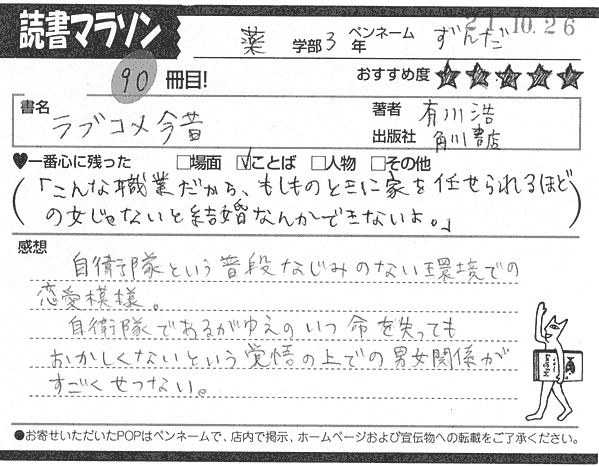 21.10.26
読書マラソン 薬 学部 3 年 ペンネーム ずんだ
90 冊目! おすすめ度 ★★★★★
書名 ラブコメ今昔 著者 有川浩
出版社 角川書店
♥一番心に残った □場面 ☑ことば □人物 □その他
(「こんな職業だから、もしものときに家を任せられるほど
の女じゃないと結婚なんかできないよ。」)
感想
自衛隊という普段なじみのない環境での
恋愛模様。
自衛隊であるがゆえのいつ命を失っても
おかしくないという覚悟の上での男女関係が
すごくせつない。
●お寄せいただいたPOPはペンネームで、店内で掲示、ホームページおよび宣伝物への転載をご了承ください。